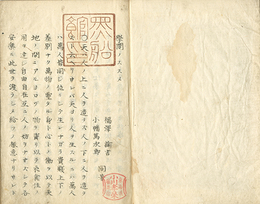 學問ノススメ
福澤諭吉
小幡篤次郎 同著
上ニ人ヲ造ラ
人ノ下ニ人ヲ造ラ
サレバ天ヨリ人ヲ生ズルニハ萬人
ハ萬人皆同ジ位ニシテ生レナガラ貴賤上下ノ
差別ナク萬物ノ靈タル身ト心トノ働ヲ以テ天
地ノ間ニアルヨロヅノ物ヲ資リ以テ衣食住ノ
用ヲ達シ自由自在互ニ人ノ妨ヲナサズシテ各
安樂ニ此世ヲ渡ラシメ給フノ趣意ナリサレド